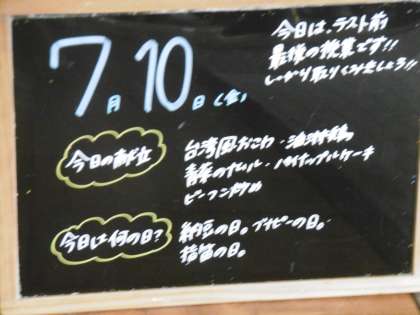 7月10日(金)
今日は、テスト前
最後の授業です!!
しっかり取りくみましょう!!
今日の献立
台湾風おこわ・油淋鶏
青菜のナムル・パイナップルケーキ
ビーフン炒め
今日は何の日?
納豆の日。ブナピーの日。
指笛の日。